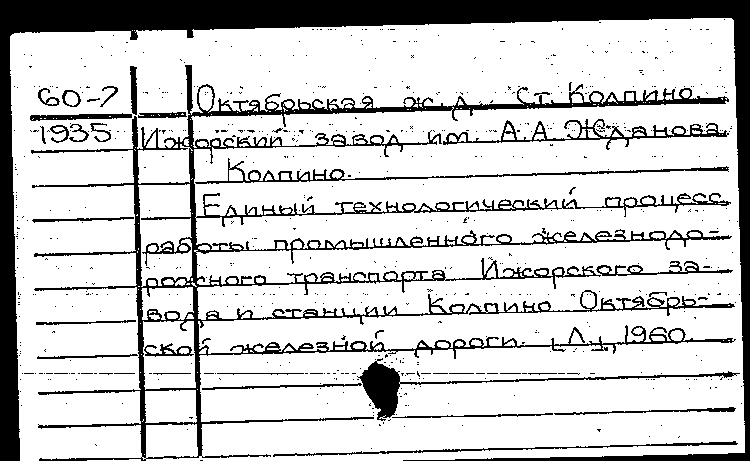 60-7 Октябрьская ж.д. Ст. Колпино.
1935 Ижорский завод им. А.А Жданова.
Колпино.
Единый технологический процесс
работы промышленного железнодо-
рожного транспорта Ижорского за-
вода и станции Колпино Октябрь-
ской железной дороги. [Л.], 1960.